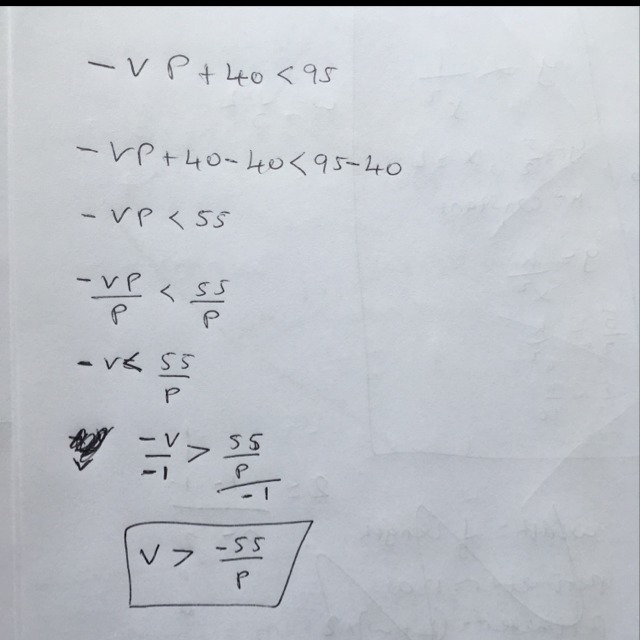 - V P + 40 < 95
- VP + 40 - 40 < 95 - 40
- VP < 55
-VP/P < 55/P
- V < 55/P
-V/-1 > 55/P/-1
V > -55/P